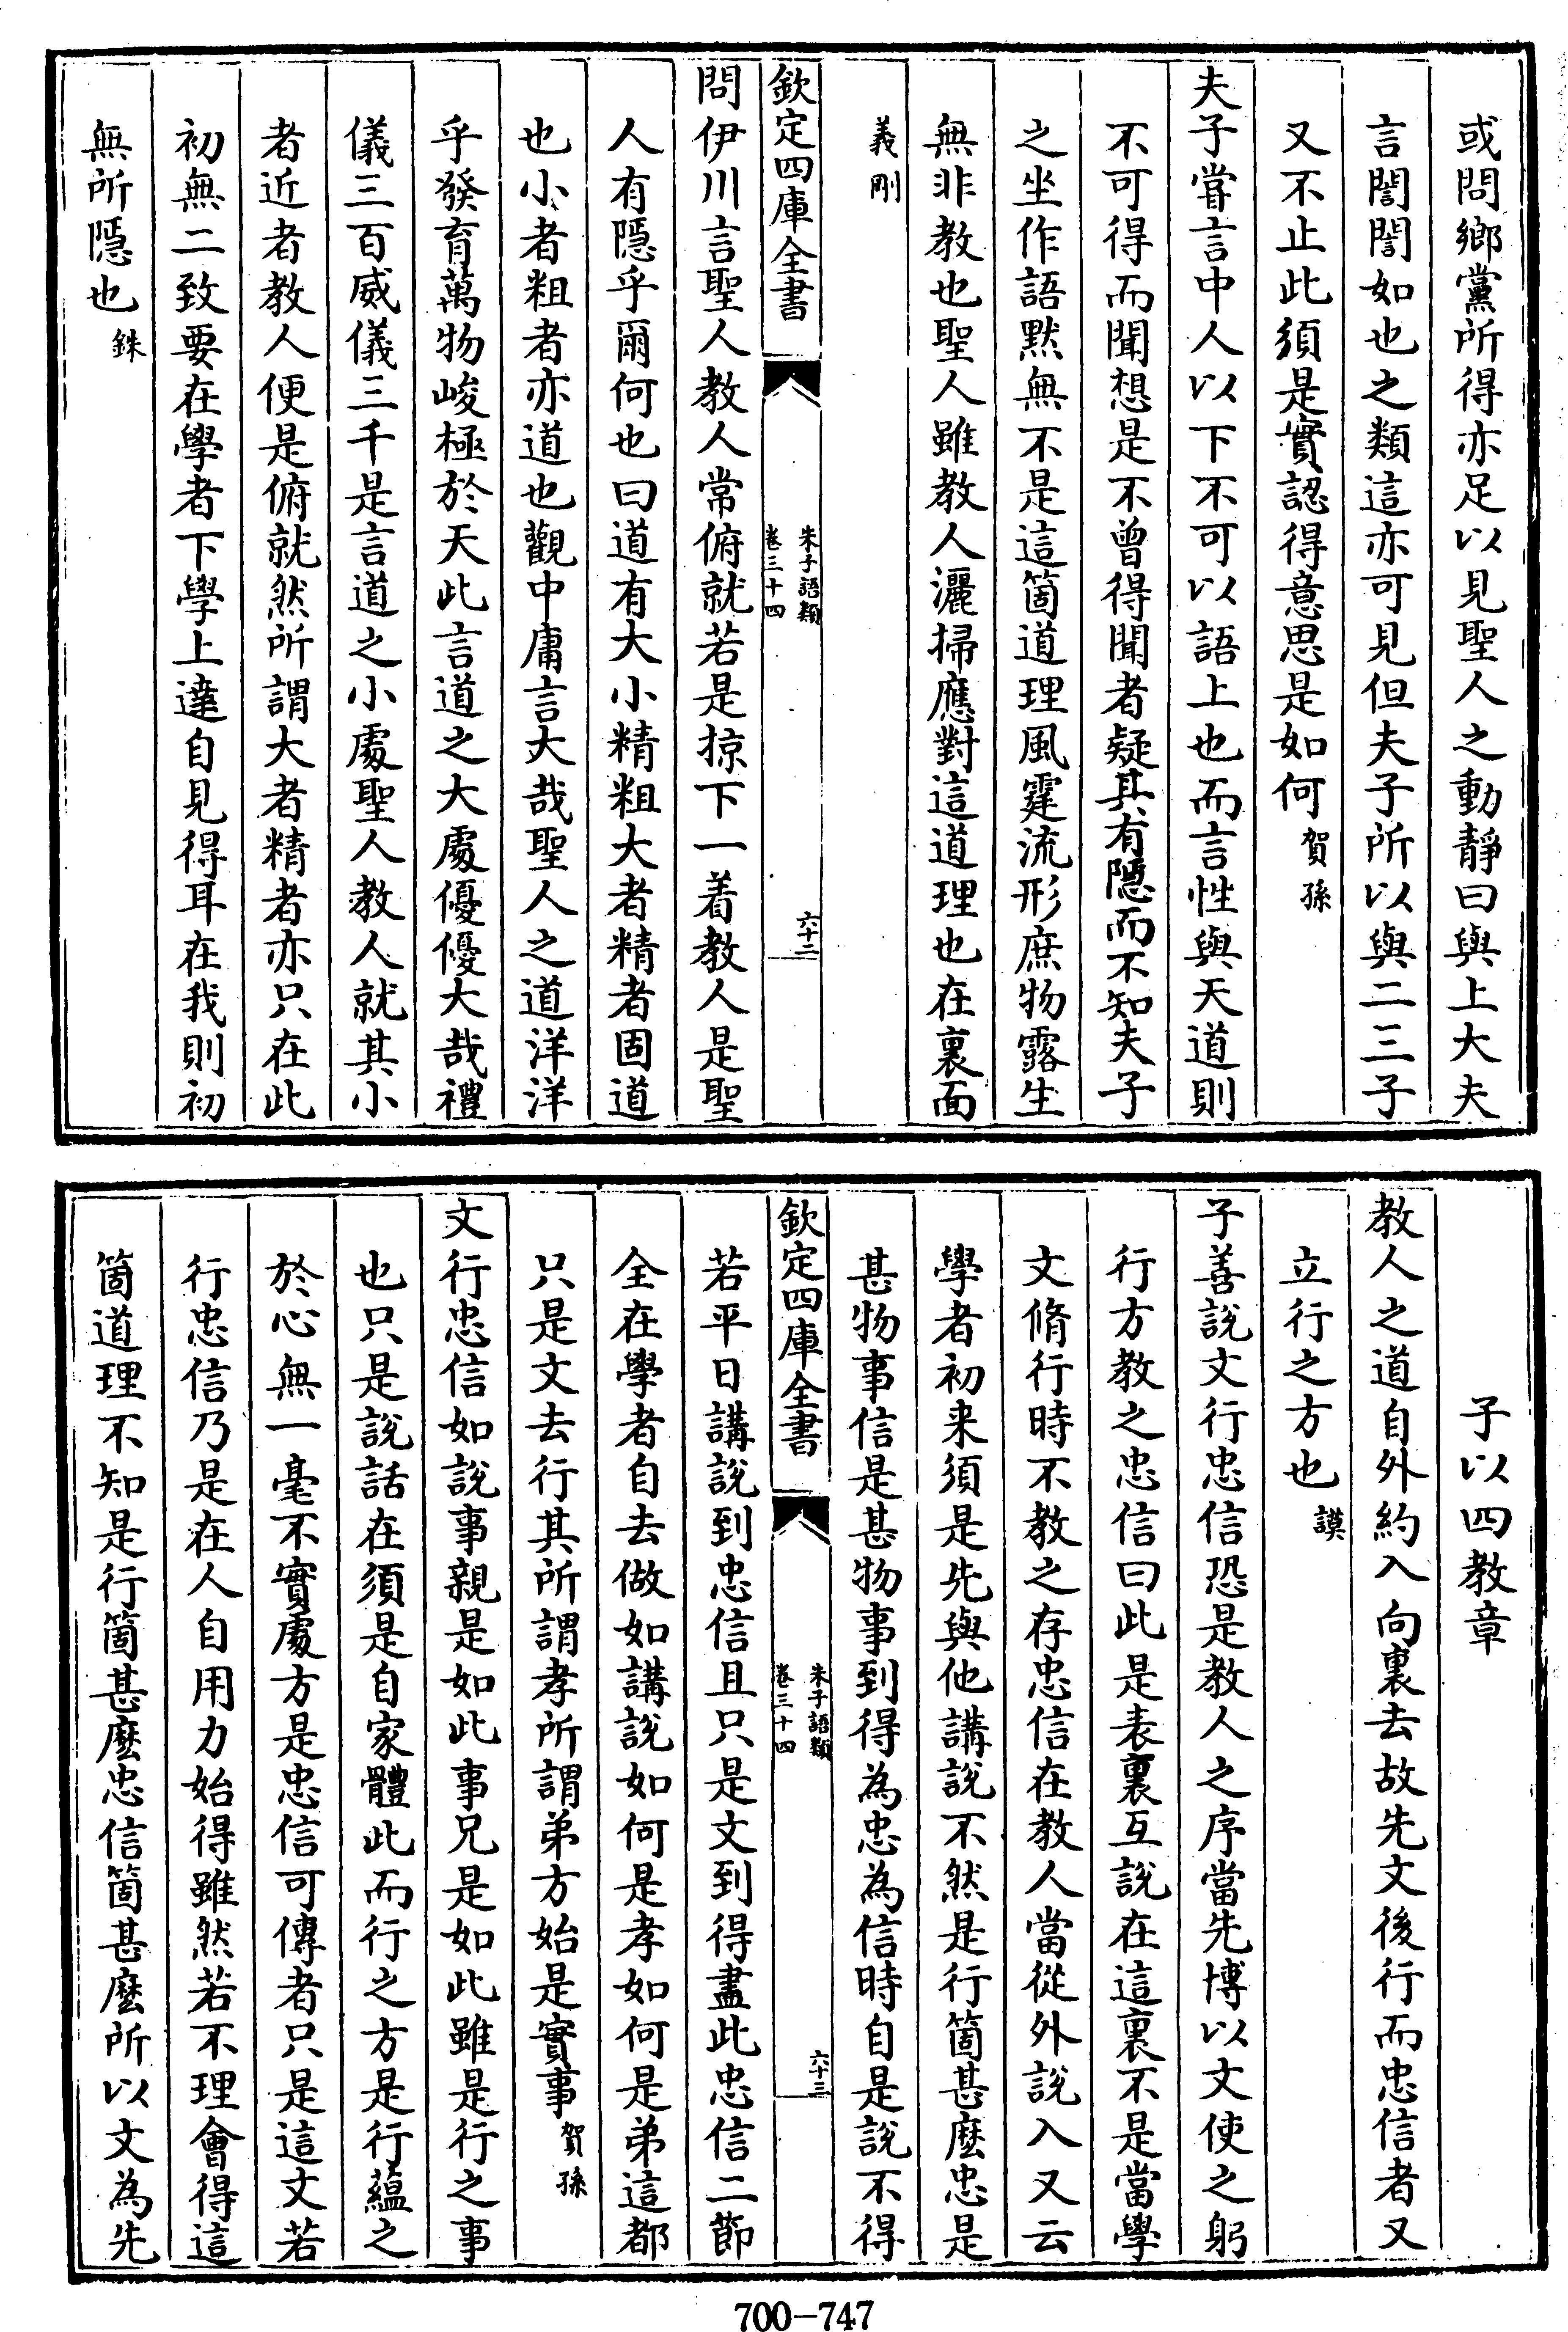 或問鄉黨所得亦足以見聖人之動靜曰與上大夫
言誾誾如也之類這亦可見但夫子所以與二三子
又不止此須是實認得意思是如何賀孫
夫子嘗言中人以下不可以語上也而言性與天道則
不可得而聞想是不曾得聞者疑其有隱而不知夫子
之坐作語默無不是這箇道理風霆流形庶物露生
無非教也聖人雖教人灑掃應對這道理也在裏面
義剛
欽定四庫全書
朱子語類
卷三十四
六十二
問伊川言聖人教人常俯就若是掠下一着教人是聖
人有隱乎爾何也曰道有大小精粗大者精者固道
也小者粗者亦道也觀中庸言大哉聖人之道洋洋
乎發育萬物峻極於天此言道之大處優優大哉禮
儀三百威儀三千是言道之小處聖人教人就其小
者近者教人便是俯就然所謂大者精者亦只在此
初無二致要在學者下學上達自見得耳在我則初
無所隱也銖
子以四教章
教人之道自外約入向裏去故先文後行而忠信者又
立行之方也謨
子善說文行忠信恐是教人之序當先博以文使之躬
行方教之忠信曰此是表裏互說在這裏不是當學
文脩行時不教之存忠信在教人當從外說入又云
學者初来須是先與他講說不然是行箇甚麽忠是
甚物事信是甚物事到得為忠為信時自是說不得
欽定四庫全書
朱子語類
卷三十四
六十三
若平日講說到忠信且只是文到得盡此忠信二節
全在學者自去做如講說如何是孝如何是弟這都
只是文去行其所謂孝所謂弟方始是實事賀孫
文行忠信如說事親是如此事兄是如此雖是行之事
也只是說話在須是自家體此而行之方是行蘊之
於心無一毫不實處方是忠信可傳者只是這文若
行忠信乃是在人自用力始得雖然若不理會得這
箇道理不知是行箇甚麽忠信箇甚麽所以文為先
700-747